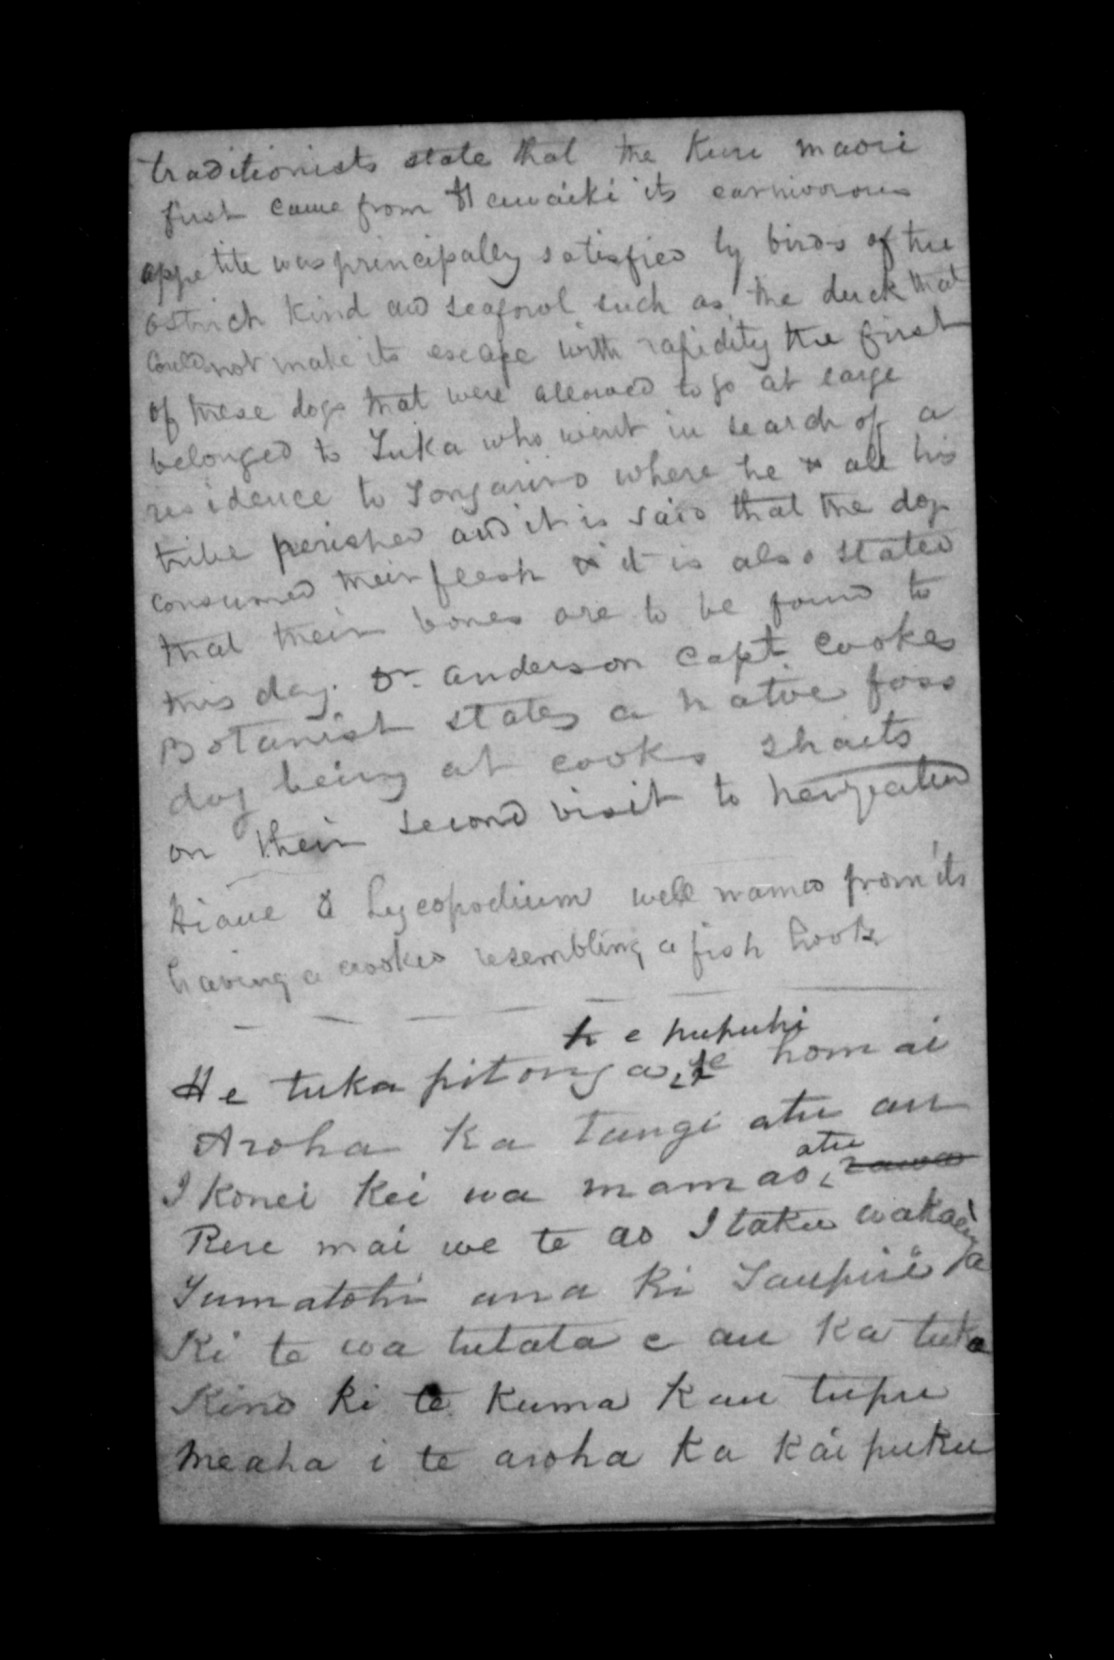 traditionists state that the Kuri maori
first came from Hawaiki its carnivorous
appetite was principally satisfied by birds of the
ostrich kind and seafowl such as the duck that
could not make its escape with rapidity the first
of these dogs that were allowed to go at large
belonged to Tuka who went in search of a
residence to Tongariro where he & all his
tribe perished and it is said that the dog
consumed their flesh & it is also stated
that their bones are to be found to
this day. Dr. anderson capt Cookes
Botanist states a native foss
dog being at cooks Straits
on their second visit to
a Lycopodium well named from its
having a crooked resembling a fish hook
h e pupuhi
He tuka pitonga, te homai
Aroha Ka Tangi atu au
I Konei Kei wa mamao, atu rawa
Rere mai we te ao I taku
ana Ki Taupiri
Ki te wa tutata e au Ka tuka
Kino ki te Kuma Kau tupu
Meaha i te aroha Ka Kai puku